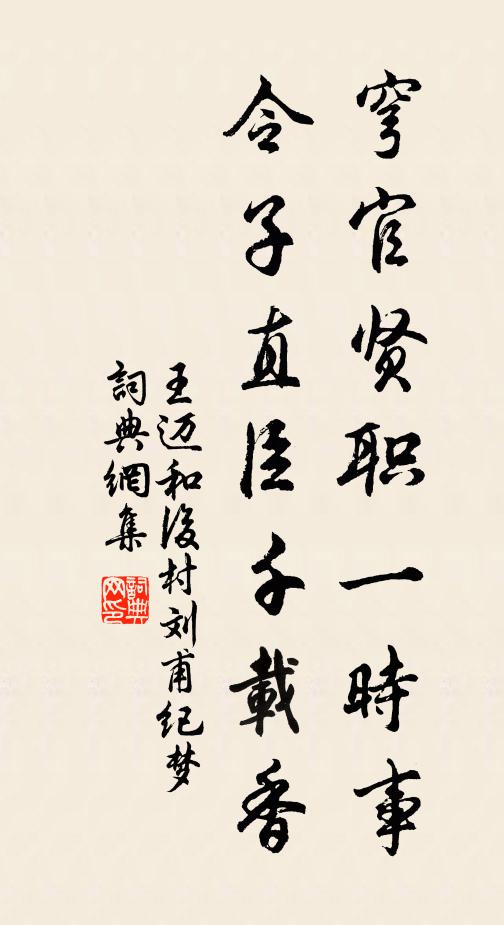 穹官贤职一時事
令子直臣千載香
王迈和後村刘甫纪梦
詞典網集
詞典网印